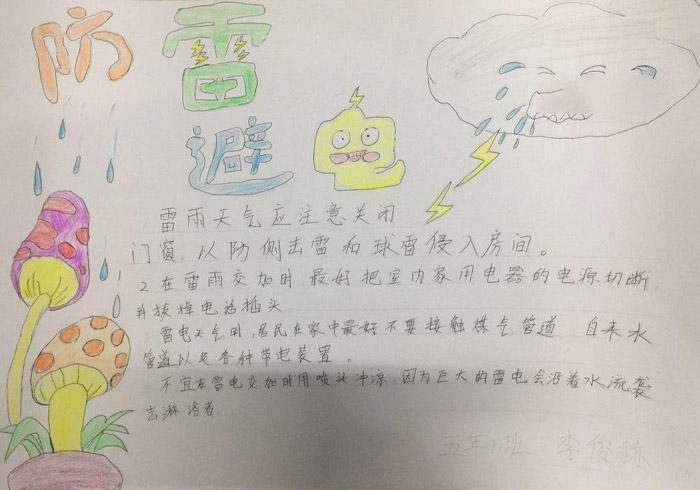 防雷
避电
雷雨天气应注意关闭
门窗,以防侧击雷和球雷侵入房间。
2在雷雨交加时最好把室内家用电器的电源切断
并拔掉电话插头
雷电天气时,居民在家中最好不要接触煤气管道 自来水
管道以及各种带电装置。
不宜在雷电交加时用喷头冲凉,因为巨大的雷电会沿着水流袭
击淋浴者
五年1班 李俊赫